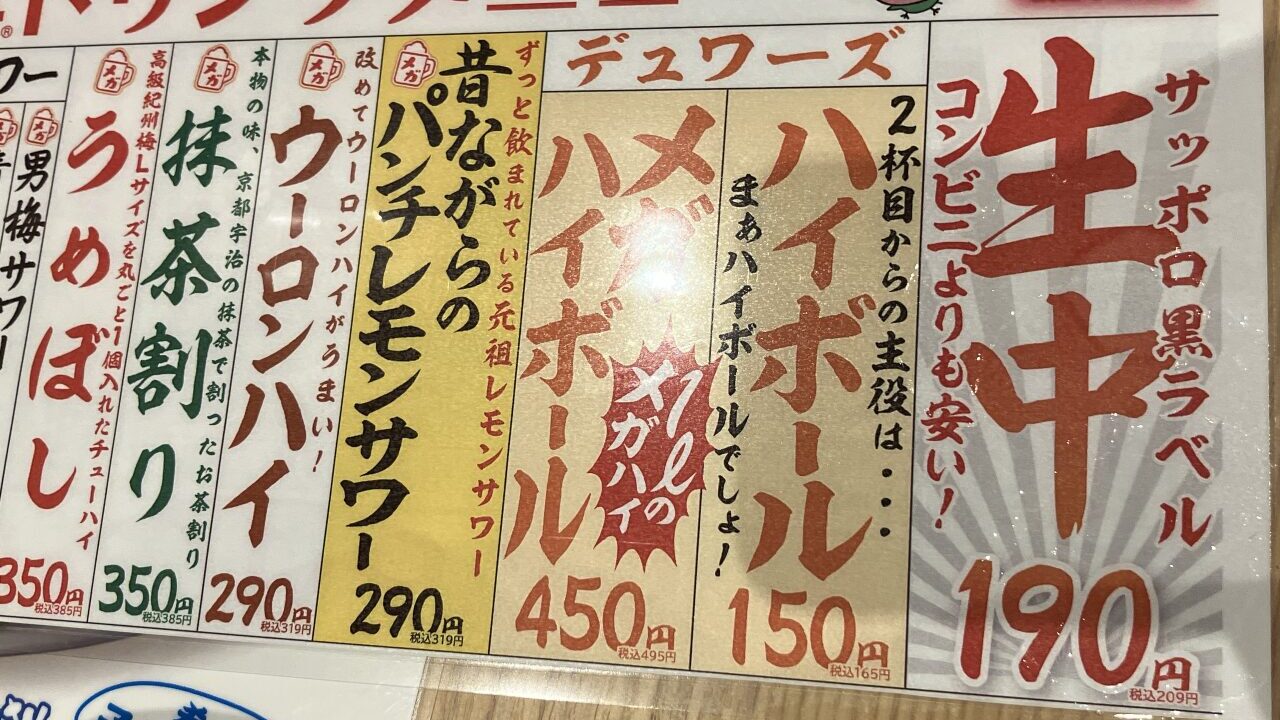 ドリンクメニュー
サッポロ黒ラベル
生中
コンビニよりも安い!
190円
税込209円
デュワーズ
2杯目からの主役は・・・
ハイボール
まぁハイボールでしょ!
150円
税込165円
メガ
ハイボール
1lの
メガハイ
450円
税込495円
ずっと飲まれている元祖レモンサワー
昔ながらの
パンチレモンサワー
メガ
290円
税込319円
改めてウーロンハイがうまい!
メガ
ウーロンハイ
290円
税込319円
本物の味、京都宇治の抹茶で割ったお茶割り
メガ
抹茶割り
350円
税込385円
高級紀州梅Lサイズを丸ごと1個入れたチューハイ
メガ
うめぼし
350円
税込385円
ワー
メガ
男梅サワー